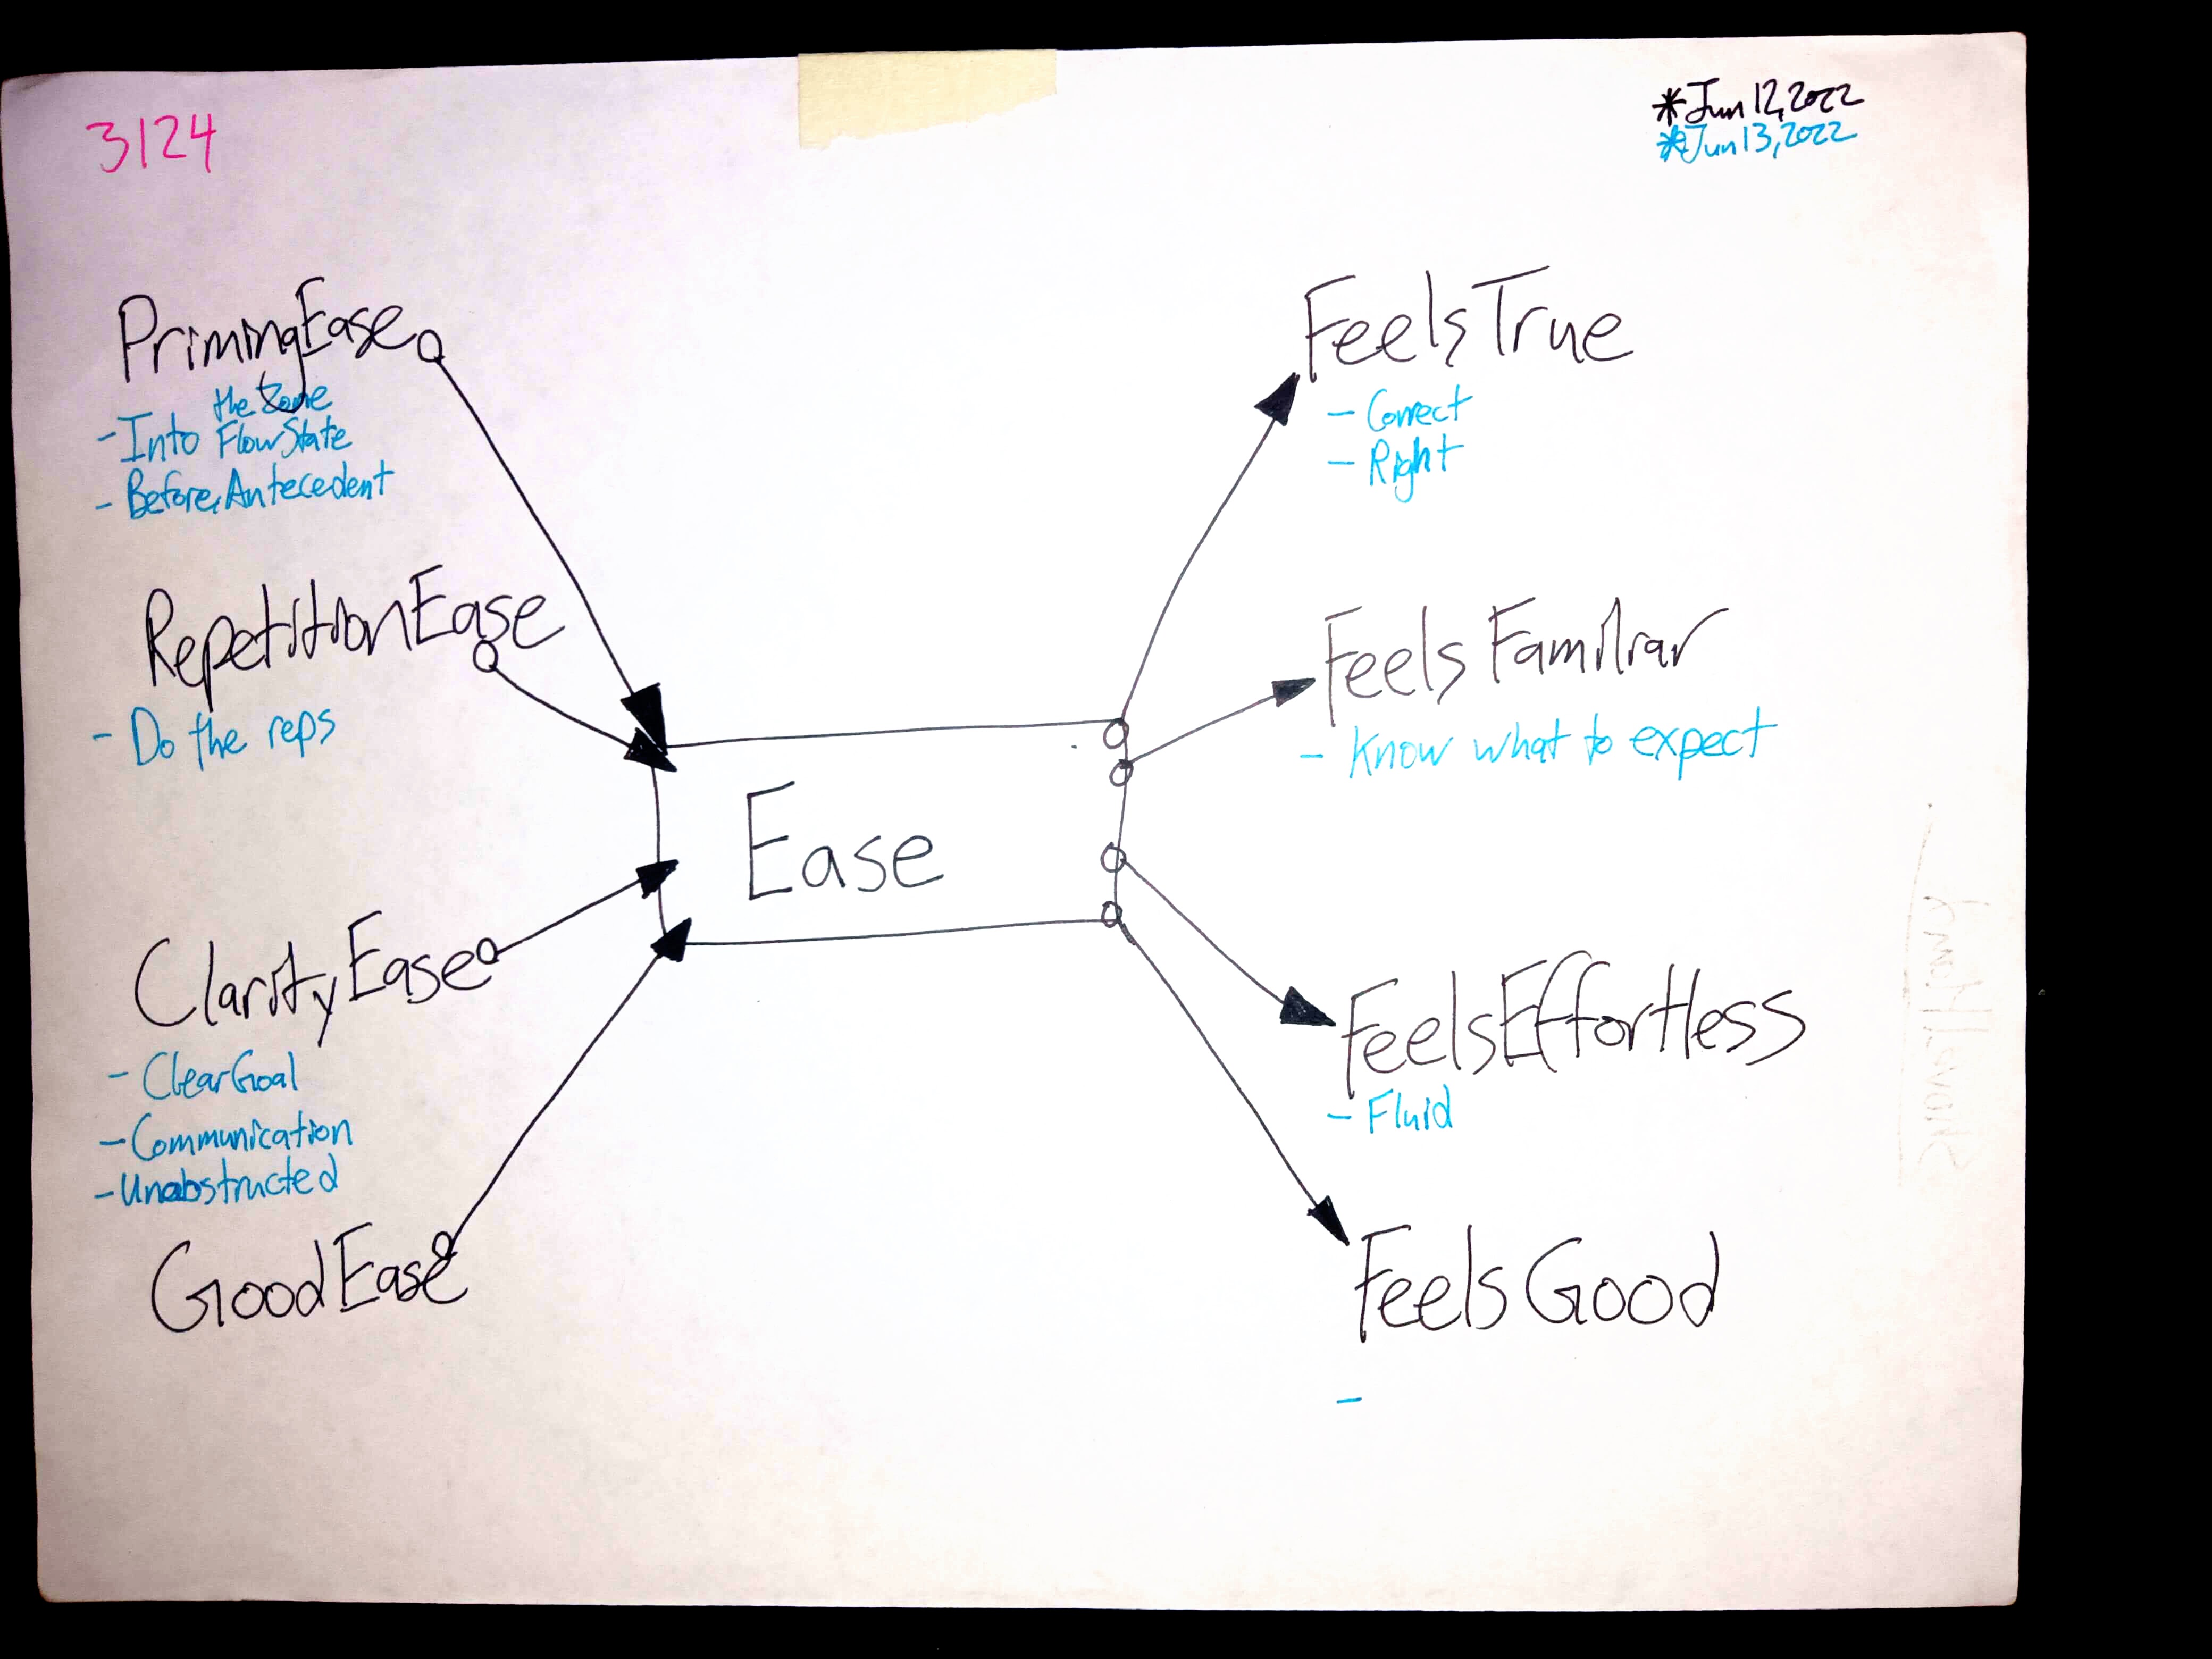 3124
*Jun 12, 2022
*Jun 13, 2022
PrimingEase
the Zone
- Into FlowState
- Before, Antecedent
RepetitionEase
- Do the reps
ClarityEase
- ClearGoal
- Communication
- Unobstructed
GoodEase
Ease
FeelsTrue
- Correct
- Right
FeelsFamiliar
- Know what to expect
FeelsEffortless
- Fluid
FeelsGood
-